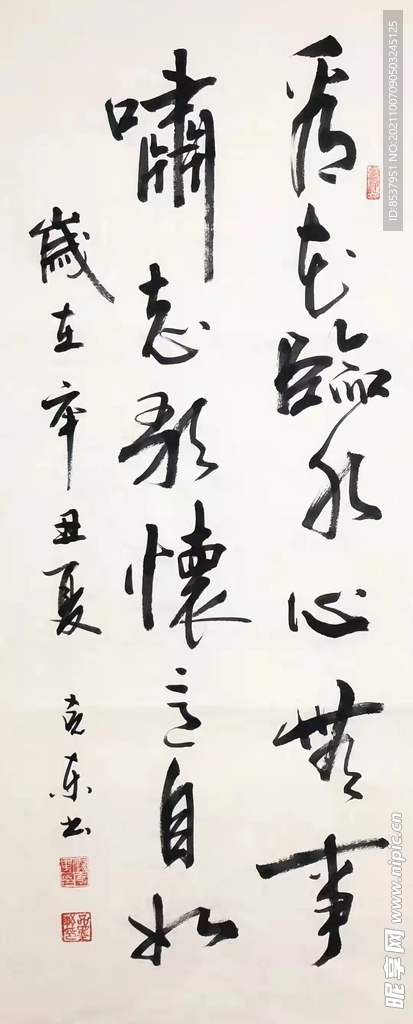 看花臨水心無事
嘯志歌懷意自如
歲在辛丑夏 克東书
ID:8537951 NO:20211007090503245125
昵享网 www.nipic.cn